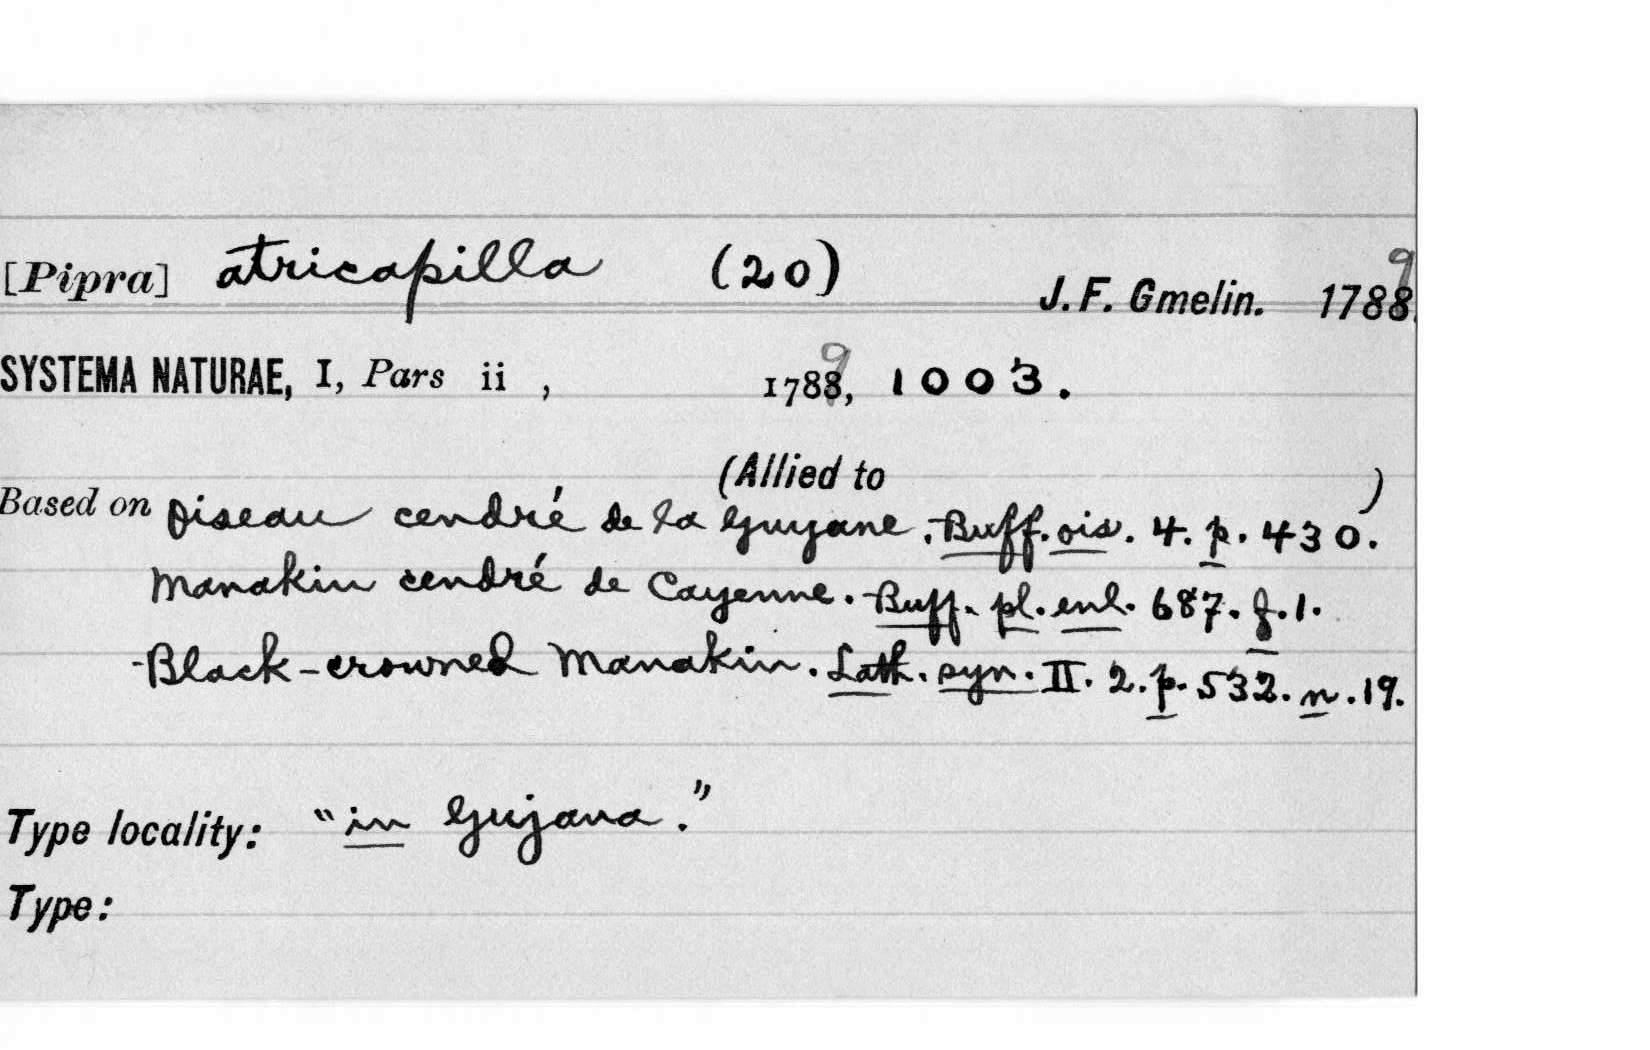 [Pipra] atricapilla (20) J. F. Gmelin. 17889
SYSTEMA NATURAE, I, Pars ii , 17889, 1003.
(Allied to )
Based on Oiseau cendré de la Guyane. Buff. ois. 4. p. 430.
Manakin cendré de Cayenne. Buff. pl. enl. 687. f. 1.
Black-crowned Manakin. Lath. syn. II. 2. p. 532. n. 19.
Type locality: "in Gujana."
Type: